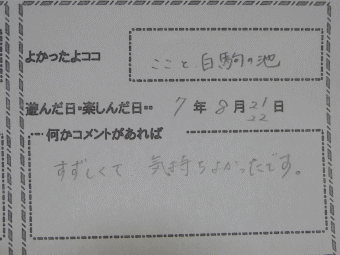 よかったよココ ここと白駒の池
遊んだ日・楽しんだ日・・ 7年 8月 21 22 日
何かコメントがあれば
すずしくて 気持ちよかったです。